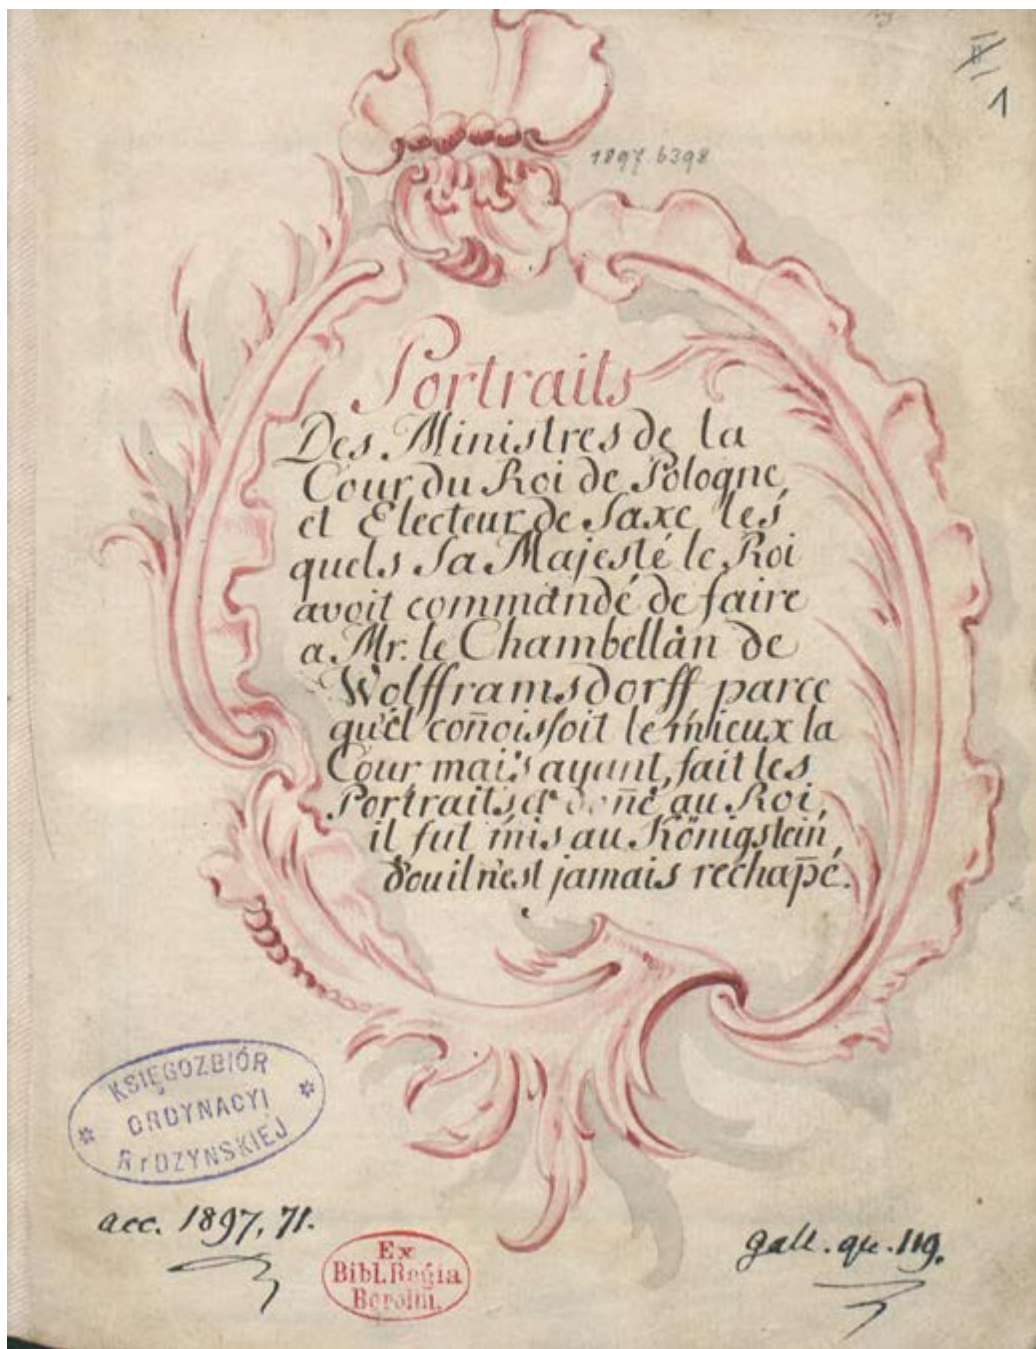 1
1897.6398
Portraits
Des Ministres de la
Cour du Roi de Pologne,
et Electeur de Saxe les
quels Sa Majesté le Roi
avoit commandé de faire
a Mr. le Chambellan de
Wolfframsdorff parce
qu'il con̄oissoit le mieux la
Cour mais ayant fait les
Portraits & don̄é au Roi,
il fut mis au Königstein,
d'ou il n'est jamais rechap̄é.
KSIĘGOZBIÓR
ORDYNACYI
RYDZYNSKIEJ
acc. 1897, 71.
Ex
Bibl. Regia
Berolin.
gall. qu. 119.